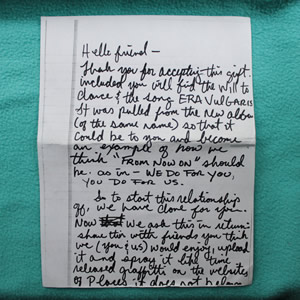 Hello friend -
Thank you for accepting this gift.
included you will find the will to
dance & the song ERA VULGARIS
It was pulled from the new album
(of the same name) so that it
could be to you and become
an example of how we
think "FROM NOW ON" should
be. as in - WE DO FOR YOU,
YOU DO FOR US.
So to start this relationship
off, we have done for you.
Now we ask this in return:
share this with friends you think
we (you & us) would enjoy, upload
it and spray it like time
released graffiti on the websites
of places it does not belong